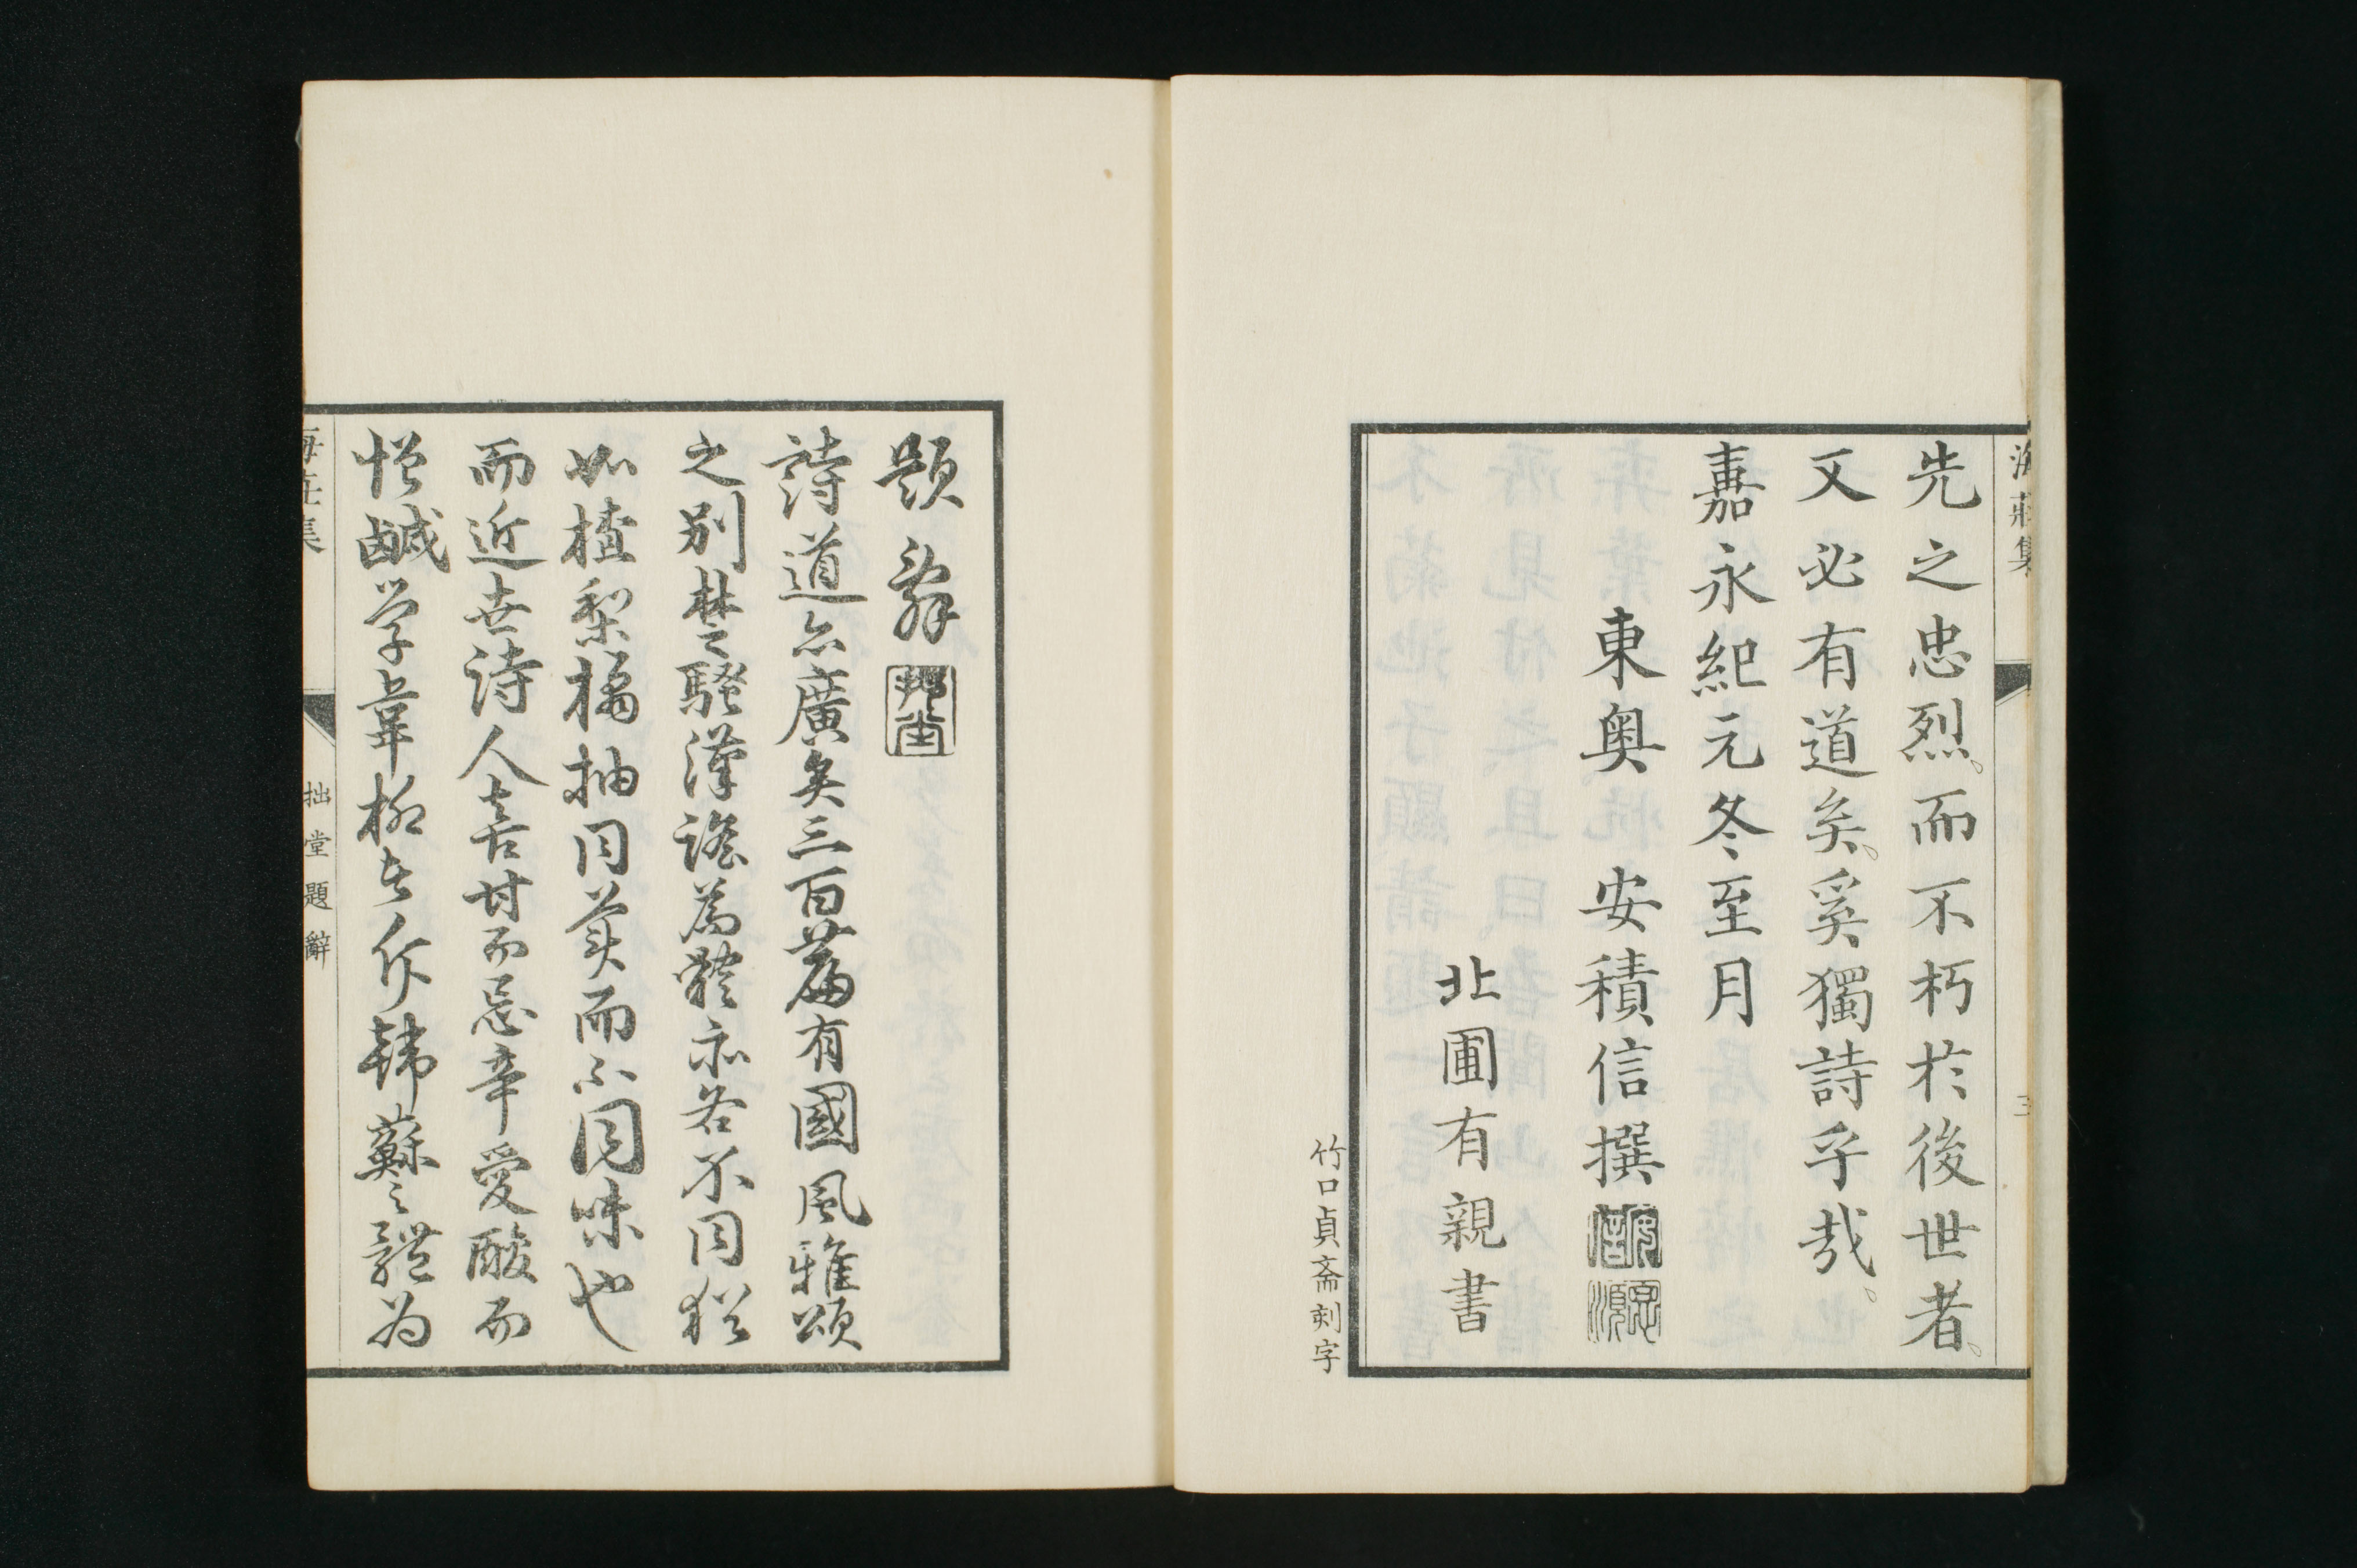 海莊集
三
先之忠烈。而不朽於後世者。
又必有道矣。奚獨詩乎哉。
嘉永紀元冬至月
東奥 安積信撰
安積信
思順
北圃有親書
竹口貞斎刻字
題辭
拙堂
詩道亦廣矣三百篇有國風雅頌
之別楚騷漢謠為體亦各不同猶
如樝梨橘柚同美而不同味也
而近世詩人喜甘而忌辛愛酸而
憎鹹学韋柳者斥韓蘇之體为
海莊集
拙堂題辭